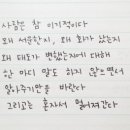 사람은 참 이기적이다
왜 서운한지, 왜 화가 났는지
왜 태도가 변했는지에 대해
한 마디 말도 하지 않으면서
알아주기만을 바란다
그리고는 혼자서 멀어져간다